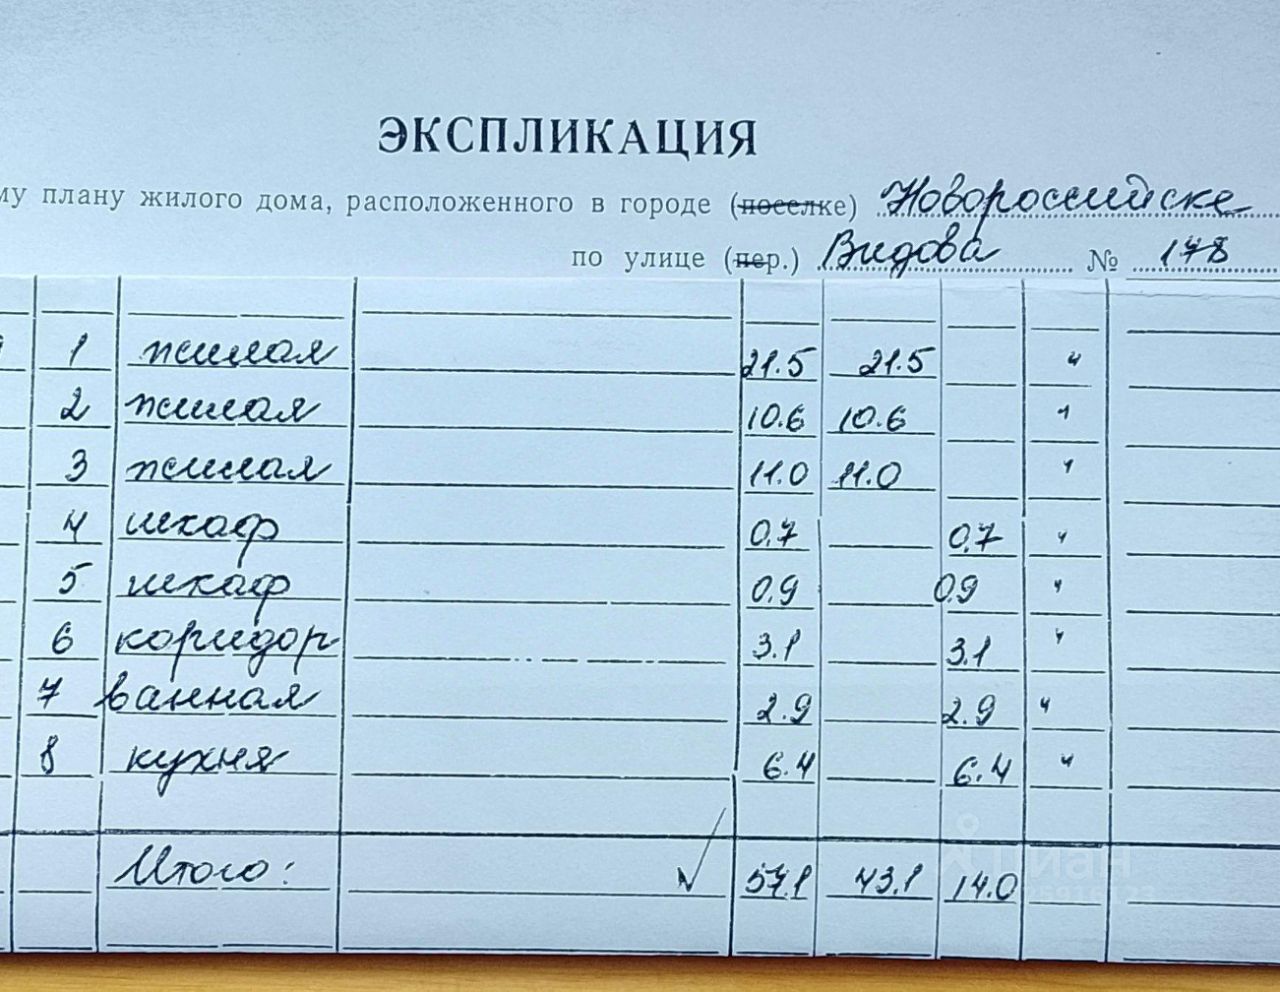 ЭКСПЛИКАЦИЯ
му плану жилого дома, расположенного в городе (поселке) Новороссийске
по улице (пер.) Видова № 178
1 жилая 21.5 21.5 "
2 жилая 10.6 10.6 "
3 жилая 11.0 11.0 "
4 шкаф 0.7 0.7 "
5 шкаф 0.9 0.9 "
6 коридор 3.1 3.1 "
7 ванная 2.9 2.9 "
8 кухня 6.4 6.4 "
Итого: 57.1 43.1 14.0
Циан